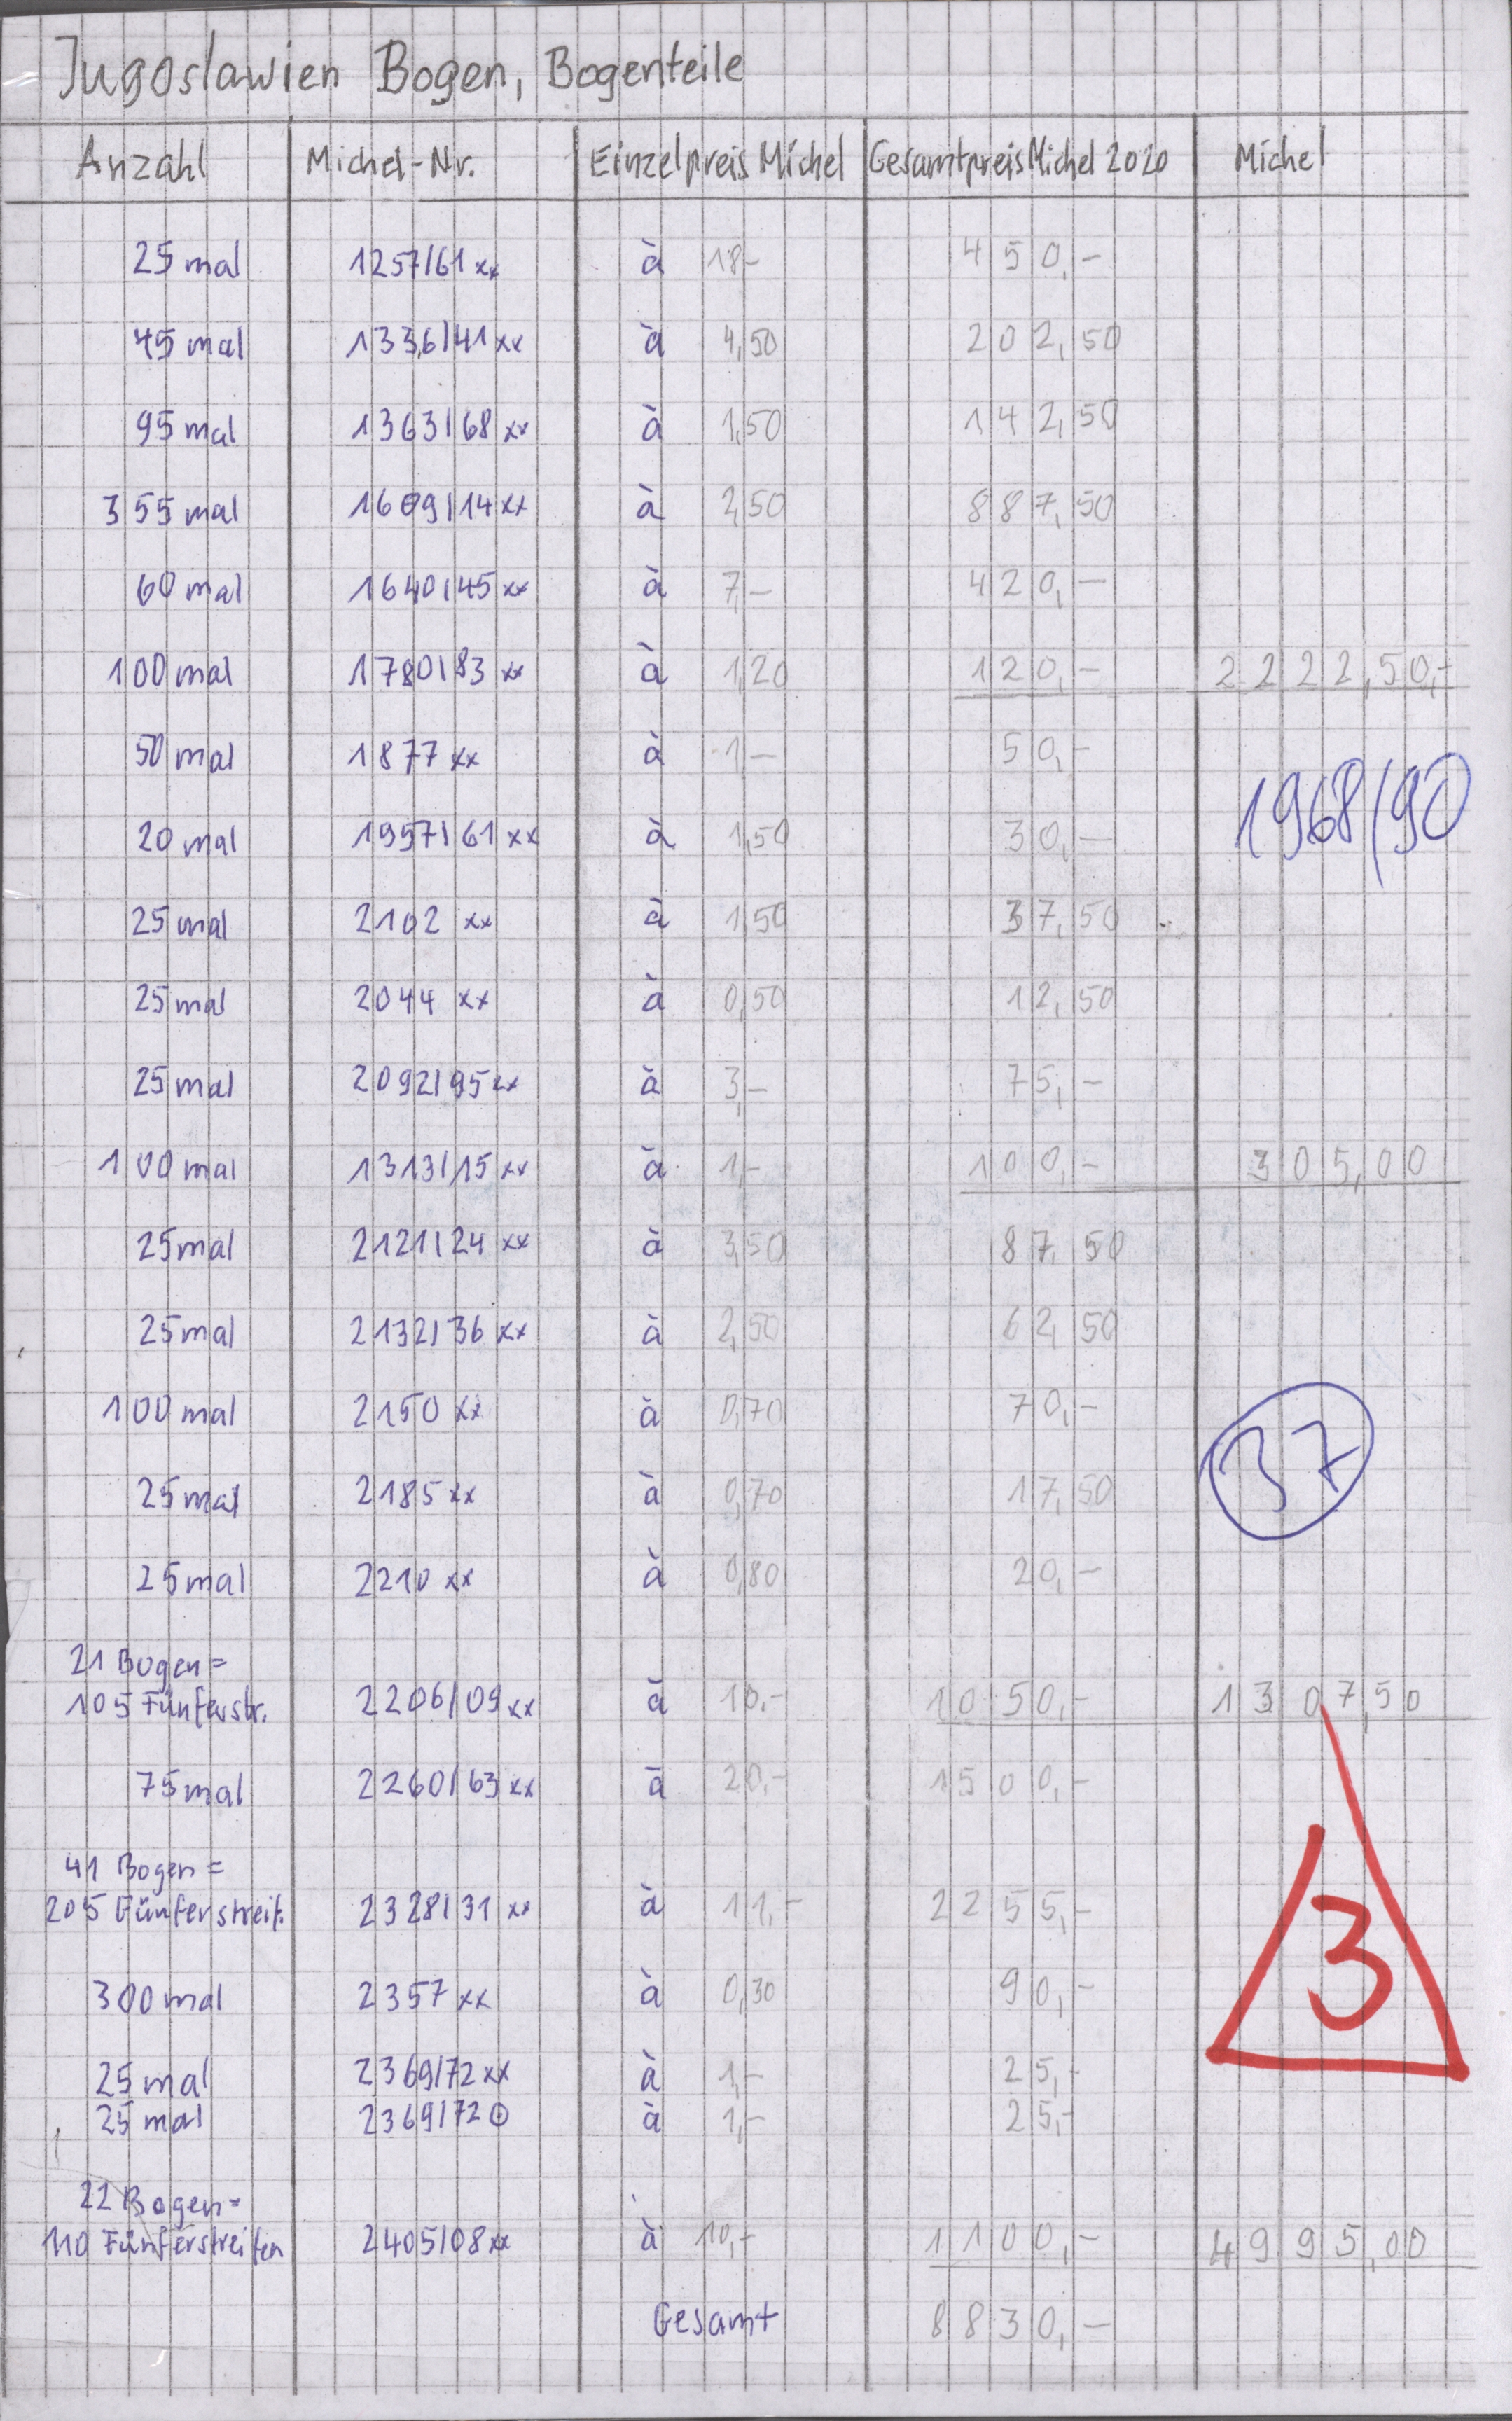 Jugoslawien Bogen, Bogenteile
Anzahl Michel-Nr. Einzelpreis Michel Gesamtpreis Michel 2020 Michel
25 mal 1257/61 xx à 18,- 450,-
45 mal 1336/41 xx à 4,50 202,50
95 mal 1363/68 xx à 1,50 142,50
355 mal 1609/14 xx à 2,50 887,50
60 mal 1640/45 xx à 7,- 420,-
100 mal 1780/83 xx à 1,20 120,- 2222,50,-
50 mal 1877 xx à 1,- 50,-
1968/90
20 mal 1957/61 xx à 1,50 30,-
25 mal 2102 xx à 1,50 37,50
25 mal 2044 xx à 0,50 12,50
25 mal 2092/95 xx à 3,- 75,-
100 mal 1313/15 xx à 1,- 100,- 305,00
25 mal 2121/24 xx à 3,50 87,50
25 mal 2132/36 xx à 2,50 62,50
100 mal 2150 xx à 0,70 70,-
37
25 mal 2185 xx à 0,70 17,50
25 mal 2210 xx à 0,80 20,-
21 Bogen =
105 Fünferstr. 2206/09 xx à 10,- 1050,- 1307,50
75 mal 2260/63 xx à 20,- 1500,-
41 Bogen =
205 Fünferstreif. 2328/31 xx à 11,- 2255,-
3
300 mal 2357 xx à 0,30 90,-
25 mal 2369/72 xx à 1,- 25,-
25 mal 2369/72 ⊙ à 1,- 25,-
22 Bogen =
110 Fünferstreifen 2405/08 xx à 10,- 1100,- 4995,00
Gesamt 8830,-